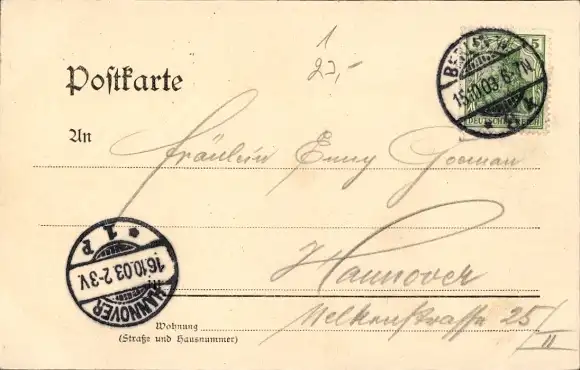 1
23,-
5
BERLIN W.
15.10.03.6-7N
DEUTSCHES REICH
Postkarte
An
Fräulein Enny
Hannover
25/II
HANNOVER
16.10.03.2-3V.
* 1 P
Wohnung
(Straße und Hausnummer)